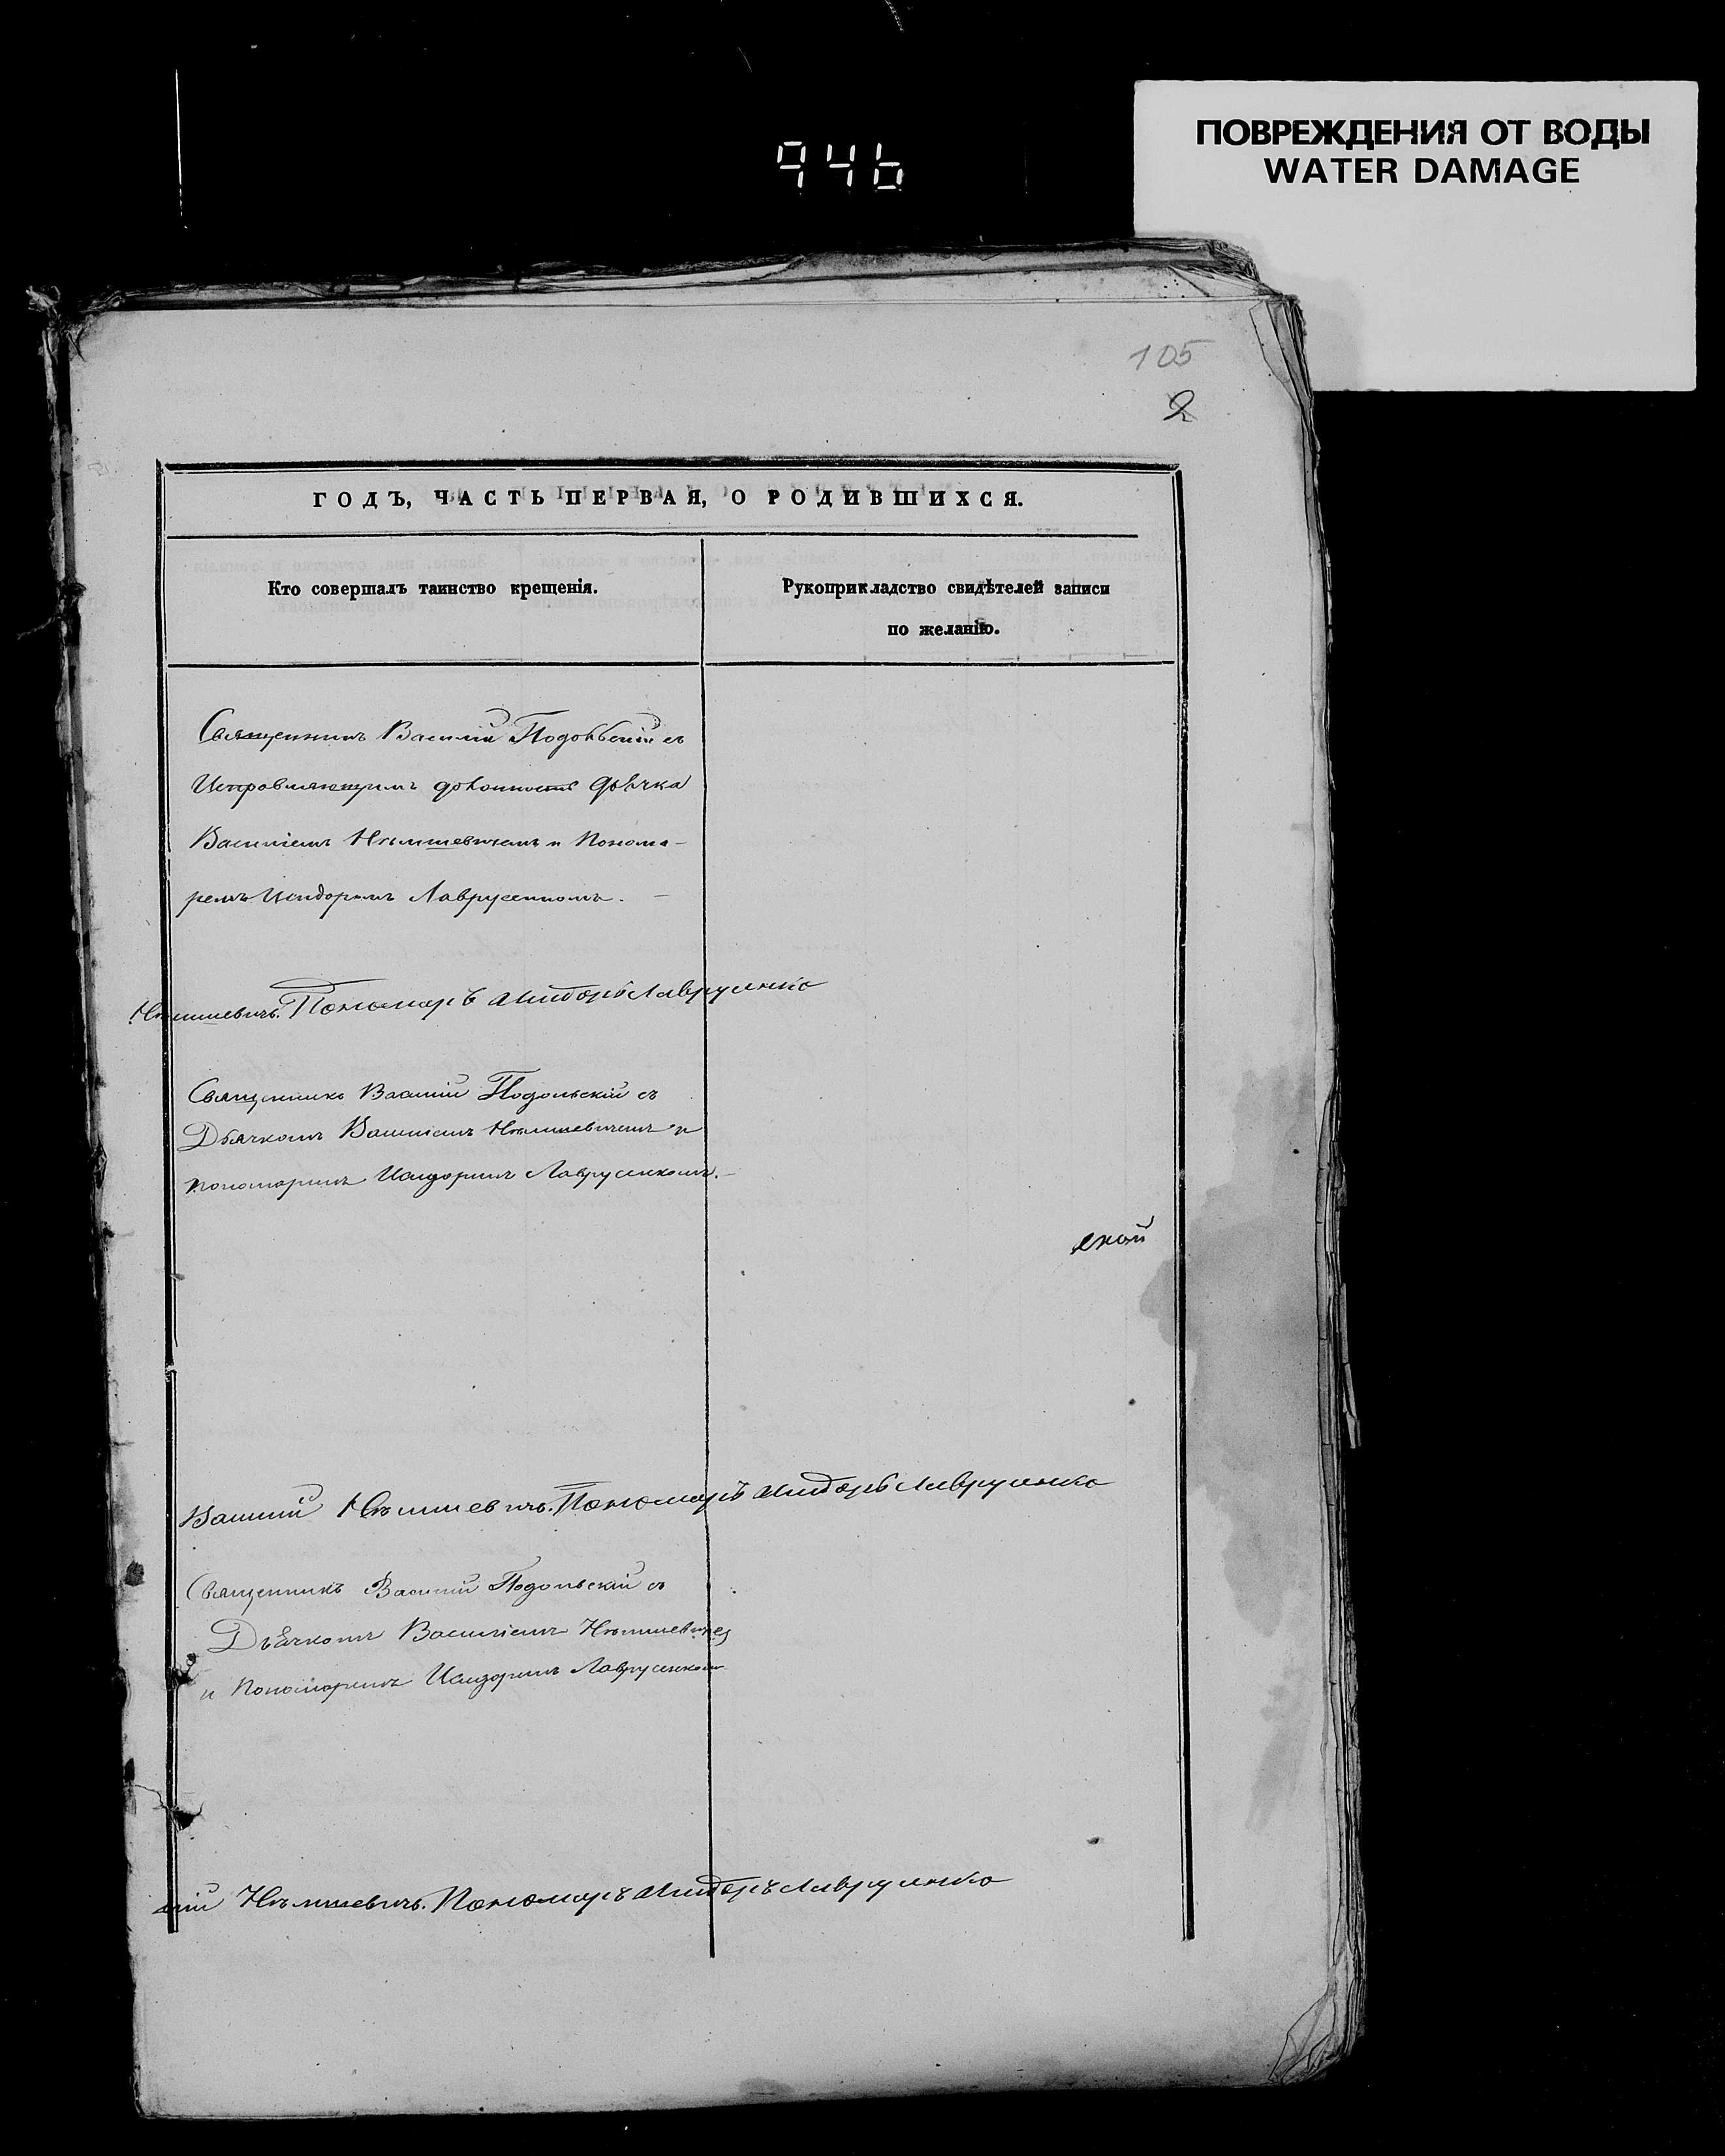 946
ПОВРЕЖДЕНИЯ ОТ ВОДЫ
WATER DAMAGE
105
2
ГОДЪ, ЧАСТЬ ПЕРВАЯ, О РОДИВШИХСЯ.
Кто совершалъ таинство крещенія.
Рукоприкладство свидѣтелей записи
по желанію.
Священникъ Василій Подольскій съ
Исправляющимъ должность Дьячка
Василіемъ Нѣмшевичемъ и Понома-
ремъ Исидоромъ Лаврусенкомъ. —
Нѣмшевичъ. Пономарь Исидоръ Лаврусенко
Священникъ Василій Подольскій съ
Дьячкомъ Василіемъ Нѣмшевичемъ и
пономаримъ Исидоримъ Лаврусенкомъ. —
ской
Василій Нѣмшевичъ. Пономарь Исидоръ Лаврусенко
Священникъ Василій Подольскій съ
Дьячкомъ Василіемъ Нѣмшевичемъ
и Пономаримъ Исидоримъ Лаврусенком
сілій Нѣмшевичъ. Пономаръ Исидоръ Лаврусенко